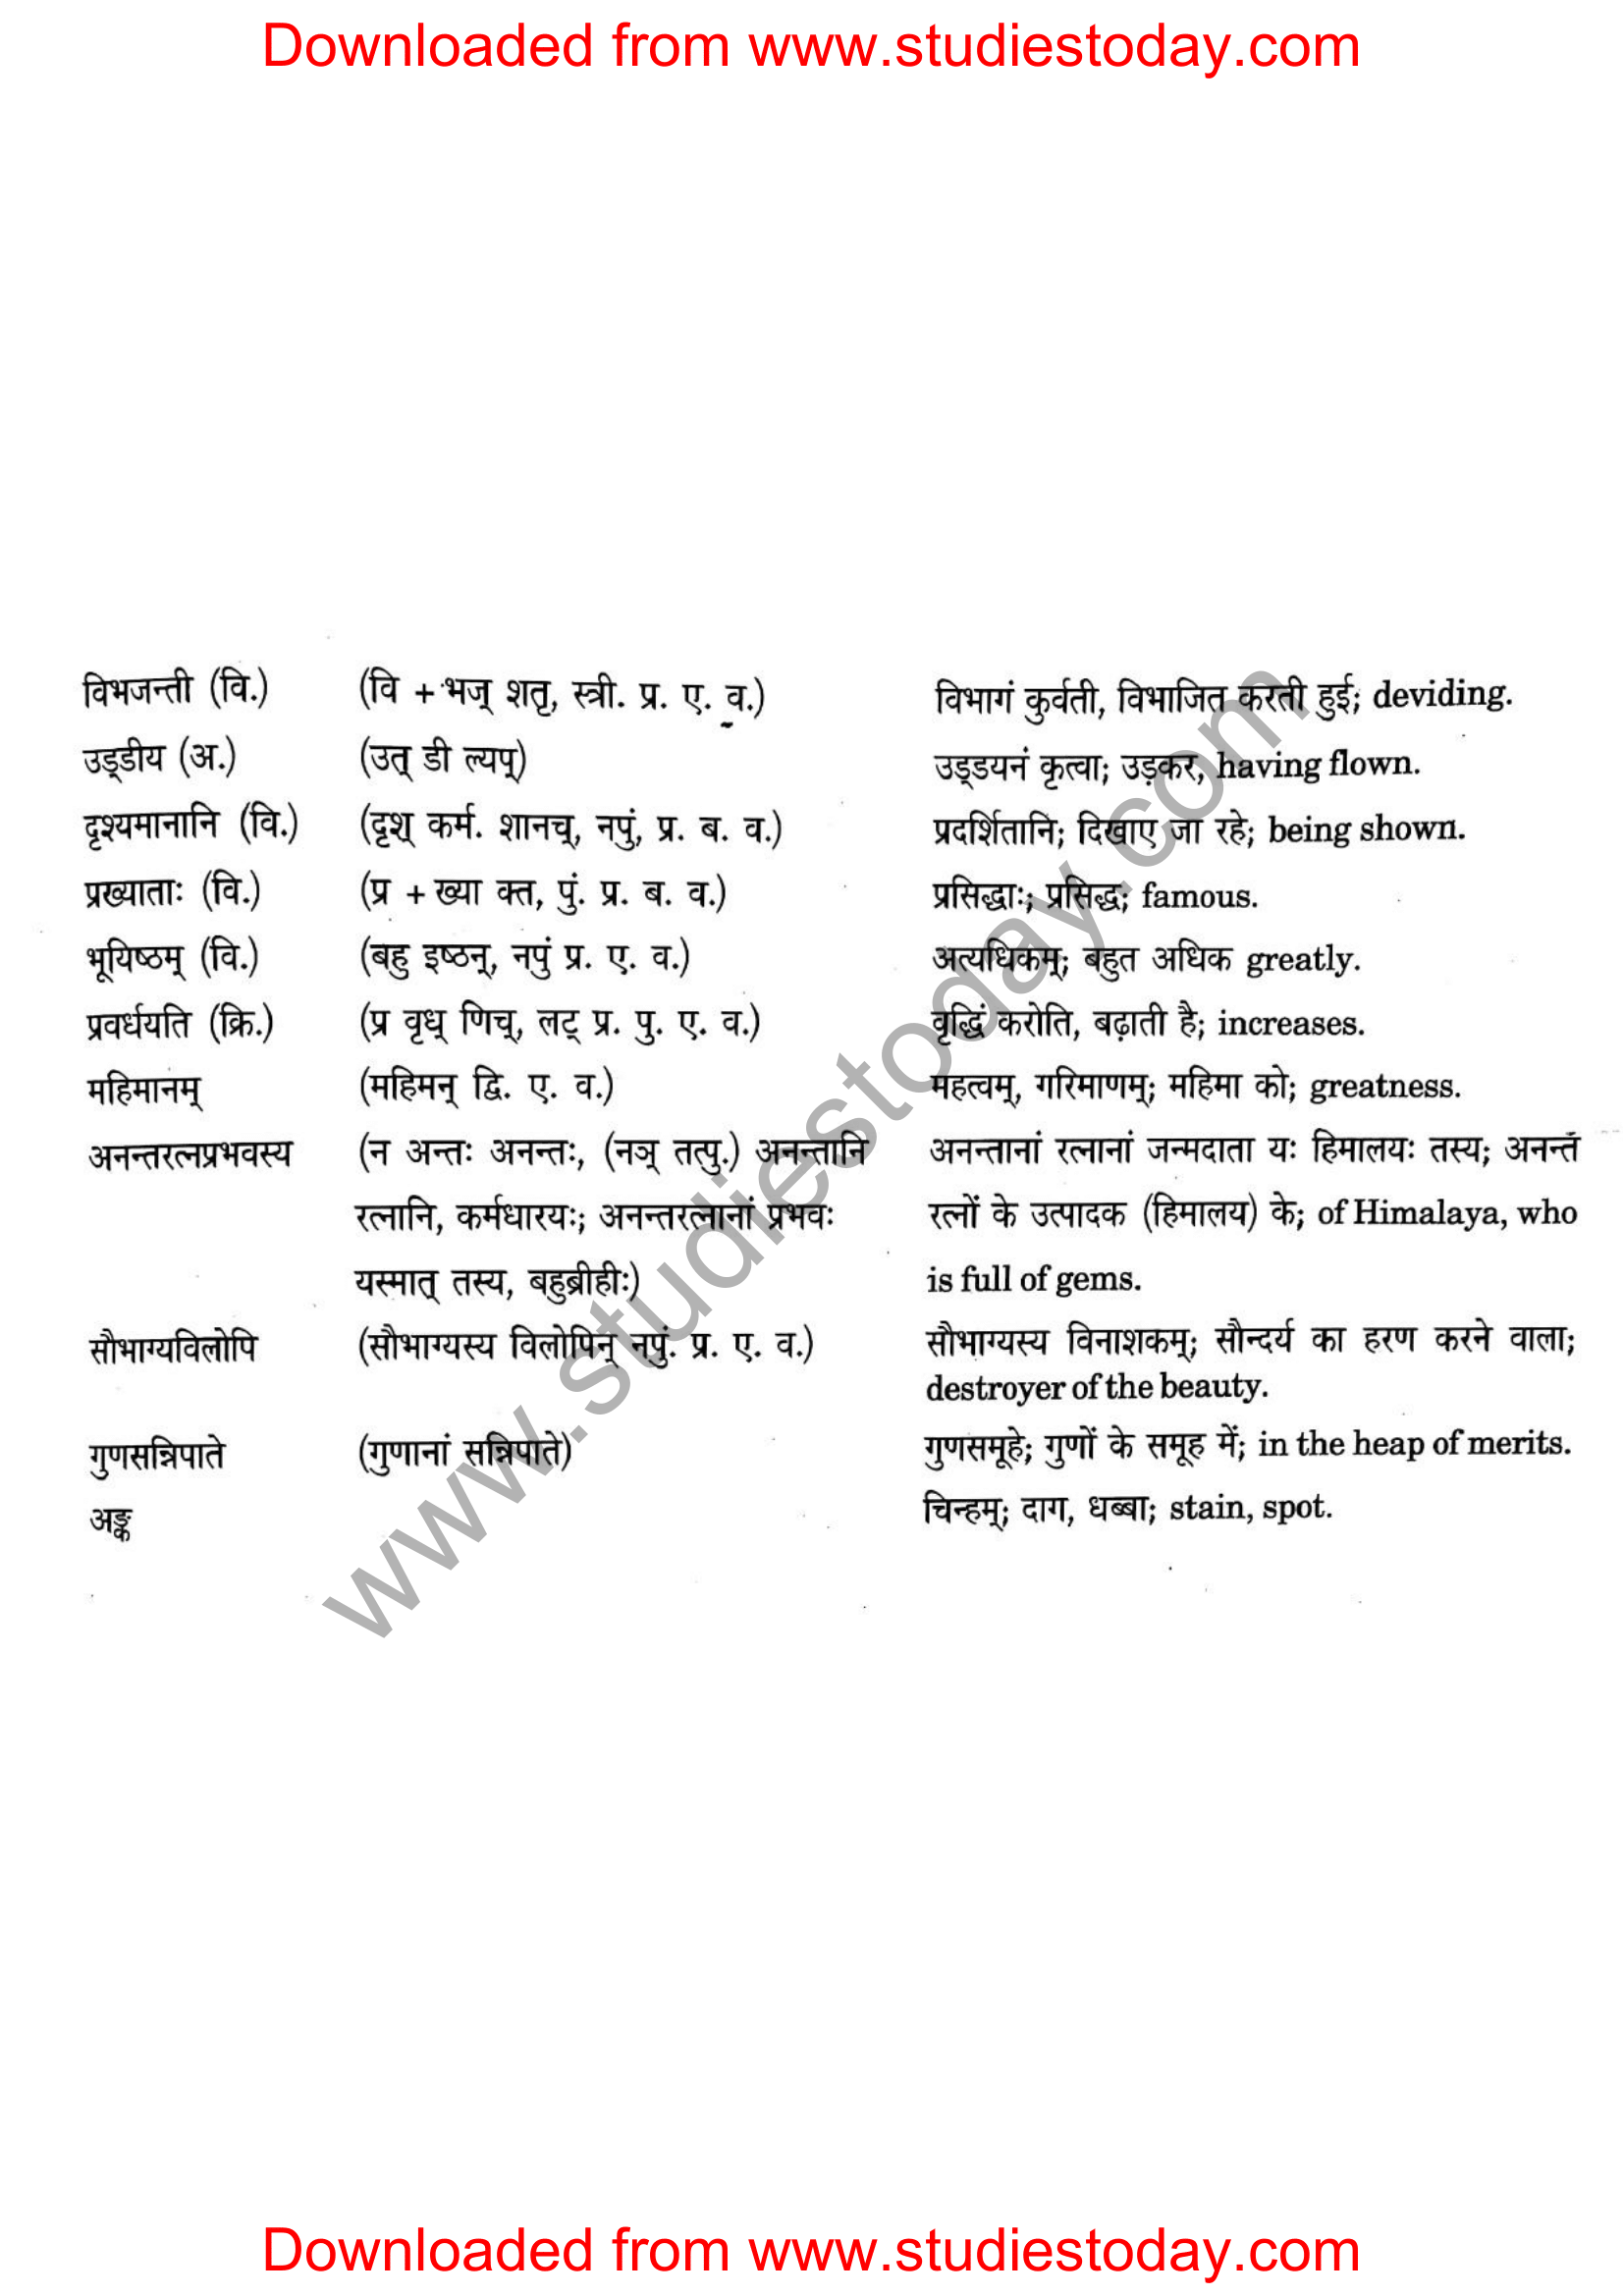 Downloaded from www.studiestoday.com
विभजन्ती (वि.) (वि + भज् शतृ, स्त्री. प्र. ए. व.) विभागं कुर्वती, विभाजित करती हुई; deviding.
उड्डीय (अ.) (उत् डी ल्यप्) उड्डयनं कृत्वा; उड़कर, having flown.
दृश्यमानानि (वि.) (दृश् कर्म. शानच्, नपुं, प्र. ब. व.) प्रदर्शितानि; दिखाए जा रहे; being shown.
प्रख्याताः (वि.) (प्र + ख्या क्त, पुं. प्र. ब. व.) प्रसिद्धाः; प्रसिद्ध; famous.
भूयिष्ठम् (वि.) (बहु इष्ठन्, नपुं प्र. ए. व.) अत्यधिकम्; बहुत अधिक greatly.
प्रवर्धयति (क्रि.) (प्र वृध् णिच्, लट् प्र. पु. ए. व.) वृद्धिं करोति, बढ़ाती है; increases.
महिमानम् (महिमन् द्वि. ए. व.) महत्वम्, गरिमाणम्; महिमा को; greatness.
अनन्तरत्नप्रभवस्य (न अन्तः अनन्तः, (नञ् तत्पु.) अनन्तानि अनन्तानां रत्नानां जन्मदाता यः हिमालयः तस्य; अनन्त
रत्नानि, कर्मधारयः; अनन्तरत्नानां प्रभवः रत्नों के उत्पादक (हिमालय) के; of Himalaya, who
यस्मात् तस्य, बहुब्रीहीः) is full of gems.
सौभाग्यविलोपि (सौभाग्यस्य विलोपिन् नपुं. प्र. ए. व.) सौभाग्यस्य विनाशकम्; सौन्दर्य का हरण करने वाला;
destroyer of the beauty.
गुणसन्निपाते (गुणानां सन्निपाते) गुणसमूहे; गुणों के समूह में; in the heap of merits.
अङ्क चिन्हम्; दाग, धब्बा; stain, spot.
www.studiestoday.com
Downloaded from www.studiestoday.com